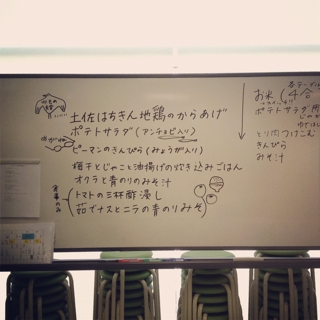 土佐はちきん地鶏のからあげ
ポテトサラダ(アンチョビ入り)
ピーマンのきんぴら(みょうが入り)
梅干とじゃこと油揚げの炊き込みごはん
オクラと青のりのみそ汁
トマトの三杯酢浸し
茹ナスとニラの青のりみそ
お米(4合
ポテトサラダ用
とり肉つけこむ
きんぴら
みそ汁